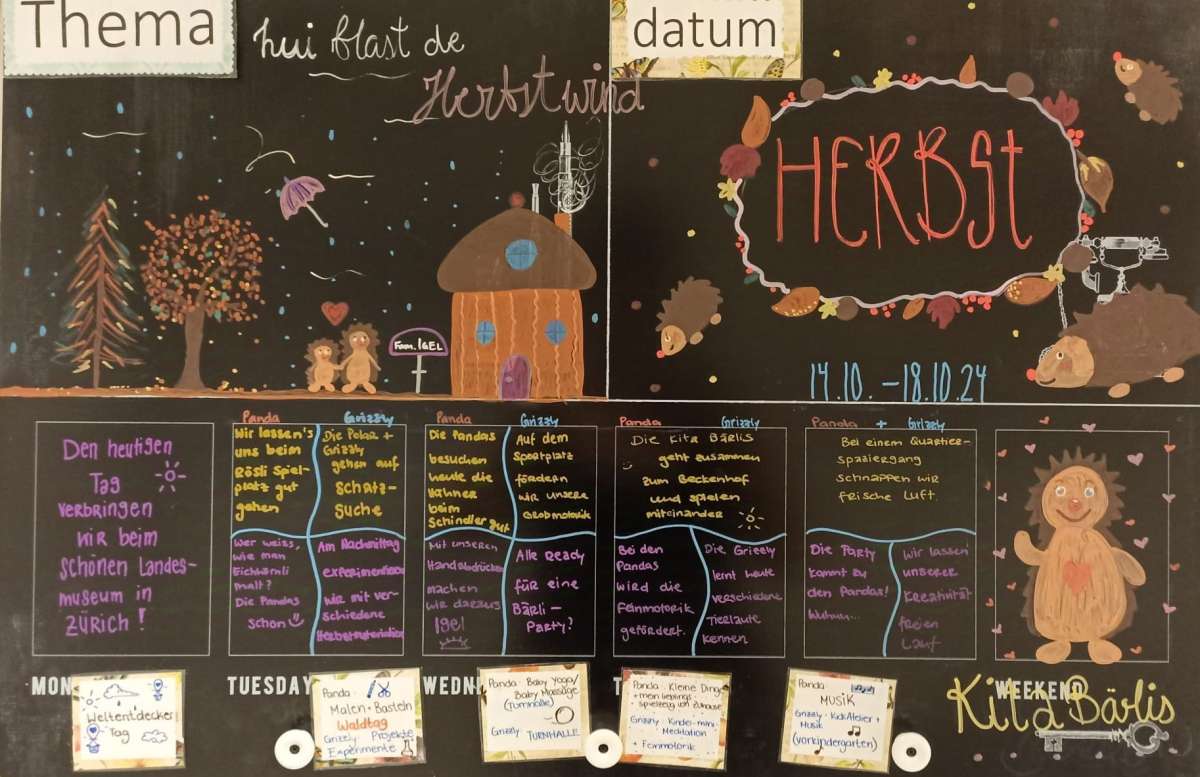 Thema
hui blast de
Herbstwind
datum
HERBST
14.10. -18.10.24
Fam. IGEL
Den heutigen
Tag
verbringen
wir beim
schönen Landes-
museum in
Zürich!
Panda
Grizzly
Wir lassen's
uns beim
Rösli Spiel-
platz gut
gehen
Die Polar +
Grizzly
gehen auf
Schatz-
suche
Wer weiss,
wie man
Eichhörnli
malt?
Die Pandas
schon
Am Nachmittag
experimentieren
wir mit ver-
schiedene
Herbstmaterialien
Panda
Grizzly
Die Pandas
besuchen
heute die
Hühner
beim
Schindlergut
Auf dem
Sportplatz
fördern
wir unsere
Grobmotorik
Mit unseren
Handabdrücken
machen
wir daraus
Igel
Alle Ready
für eine
Bärli-
Party?
Panda
Grizzly
Die Kita Bärlis
geht zusammen
zum Beckenhof
und spielen
miteinander
Bei den
Pandas
wird die
Feinmotorik
gefördert.
Die Grizzly
lernt heute
verschiedene
Tierlaute
kennen
Panda + Grizzly
Bei einem Quartier-
spaziergang
schnappen wir
frische Luft.
Die Party
kommt zu
den Pandas!
Wuhuu...
Wir lassen
unserer
Kreativität
freien
Lauf
MON
TUESDAY
WEDN
T
WEEKEND
Kita Bärlis
Weltentdecker
Tag
Panda-
Malen-Basteln
Waldtag
Grizzly- Projekte
Experimente
Panda- Baby Yoga/
Baby Massage
(Turnhalle)
Grizzly TURNHALLE
Panda- Kleine Ding
+ mein lieblings-
spielzeug von zuhause
Grizzly- Kinder-mini-
Meditation
+ Feinmotorik
Panda
MUSIK
Grizzly- KidsAtelier +
Musik
(Vorkindergarten)